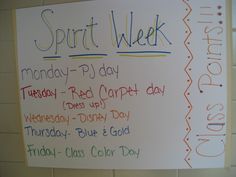 Spirit Week
Monday - PJ day
Tuesday - Red Carpet day
(Dress up!)
Wednesday - Disney Day
Thursday - Blue & Gold
Friday - Class Color Day
Class Points!!!